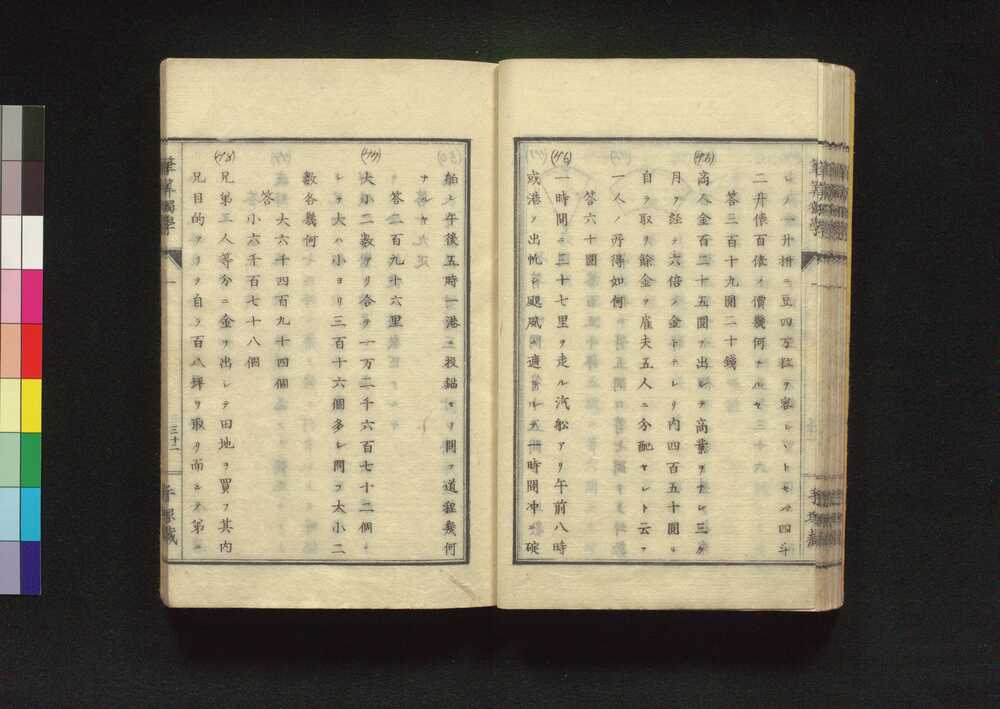 二升俵百俵ノ價幾何ナルヤ
答三百十九圓二十錢
(75)
商人金百二十五圓ヲ出シテ商業ヲナシ三ケ
月ヲ経テ六倍ノ金トナレリ内四百五十圓ヲ
自ラ取リ餘金ヲ雇夫五人ニ分配セシト云フ
一人ノ所得如何
答六十圓
(76)
一時間ニ三十七里ヲ走ル汽船アリ午前八時
或港ヲ出帆シ颶風ニ遭
一時間冲ニ碇
舶シ午後五時一港ニ投錨セリ問フ道程幾何
ナルヤ
答二百九十六里
(77)
大小二數アリ合シテ一万二千六百七十二個ト
シテ大ハ小ヨリ三百十六個多シ問フ大小二
數各幾何
答
大六千四百九十四個
小六千百七十八個
(78)
兄弟三人等分ニ金ヲ出シテ田地ヲ買フ其内
兄目的アリテ自ラ百八坪ヲ取リ而シテ第二
筆算獨學
一
三十二